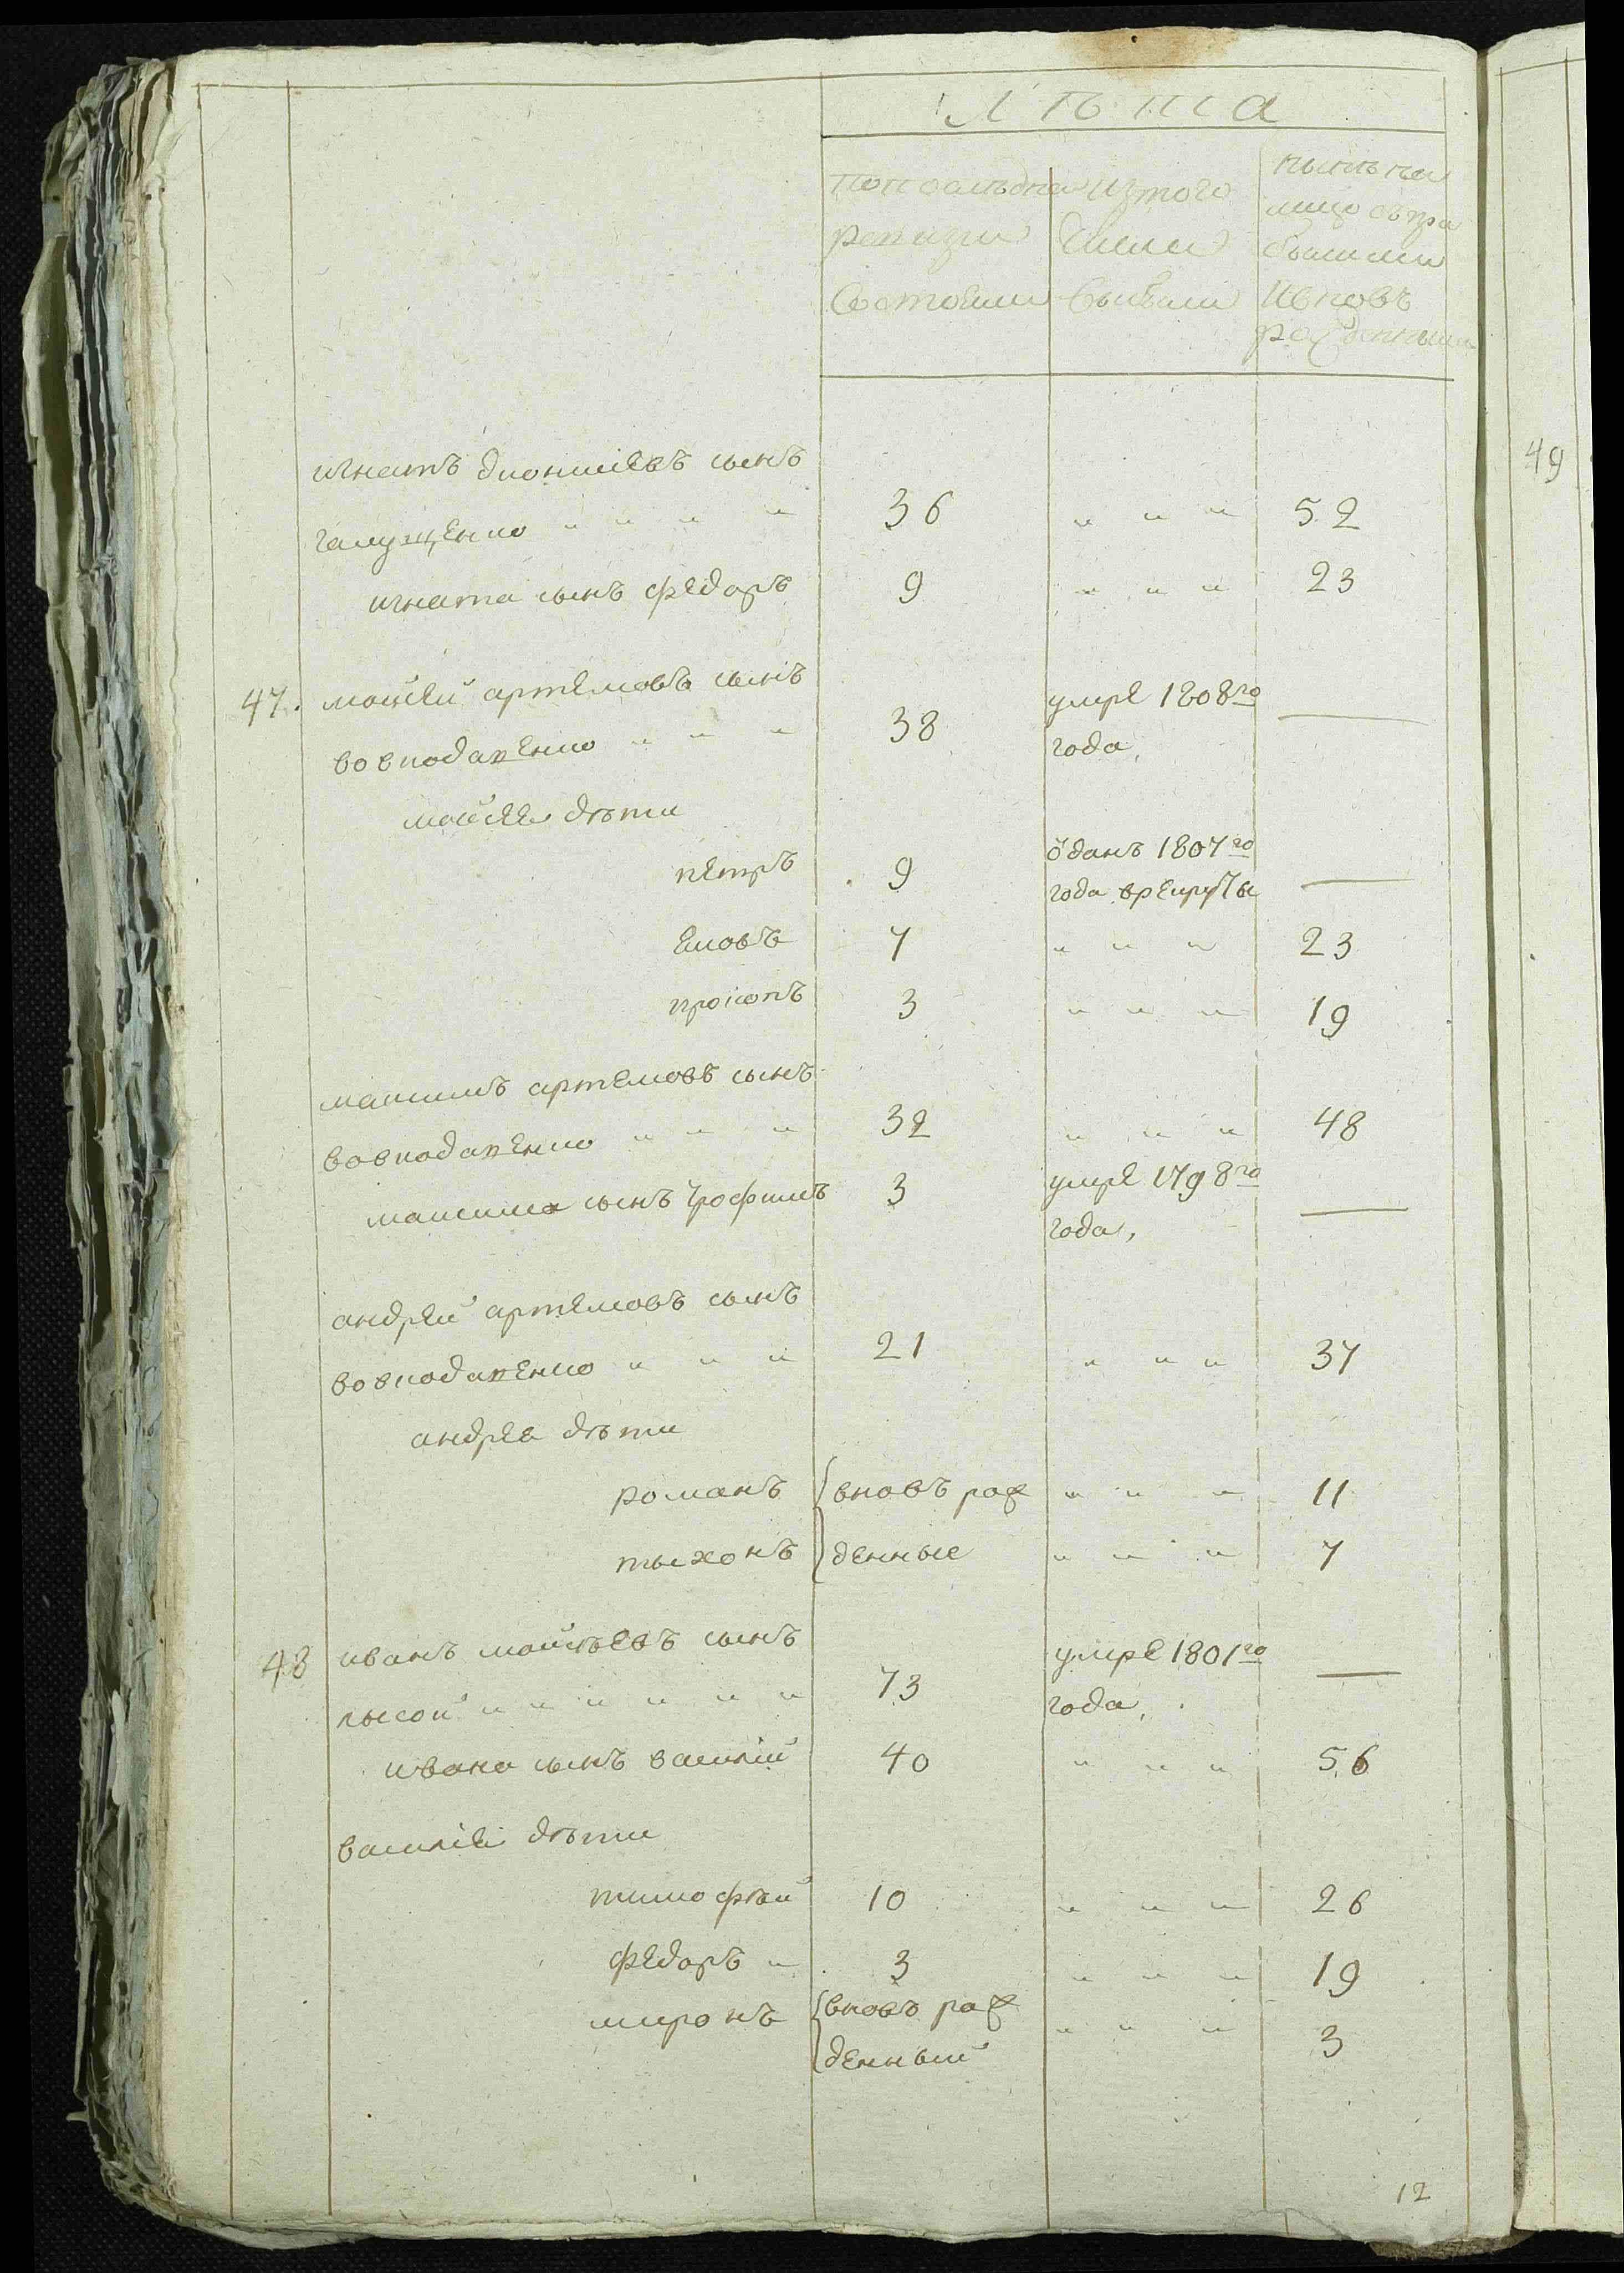 лѣта
попослѣдне изтого нынѣ на
ревизіи числа лицо съпри
былыми
состояли выбыли и вновь
рожденными
игнатъ дионисіевъ сынъ
галущенко " " " " 36 " " " 52
игната сынъ федоръ 9 " " " 23
49
47. мойсей артемовъ сынъ умре 1808го
вовкодавенко " " " 38 года, —
мойсея дѣти
петръ 9 ѿданъ 1807го
года врекруты —
яковъ 7 " " " 23
прокопъ 3 " " " 19
максимъ артемовъ сынъ
вовкодавенко " " " 32 " " " 48
максима сынъ трофимъ 3 умре 1798го
года, —
андрей артемовъ сынъ
вовкодавенко " " " 21 " " " 37
андрея дѣти
романъ вновь рож " " " 11
тыхонъ денные " " " 7
48 иванъ мойсѣевъ сынъ умре 1801го
лысой " " " " " " 73 года, —
ивана сынъ василій 40 " " " 56
василія дѣти
тимофѣй 10 " " " 26
федоръ " 3 " " " 19
миронъ вновь рож " " " 3
денный
12